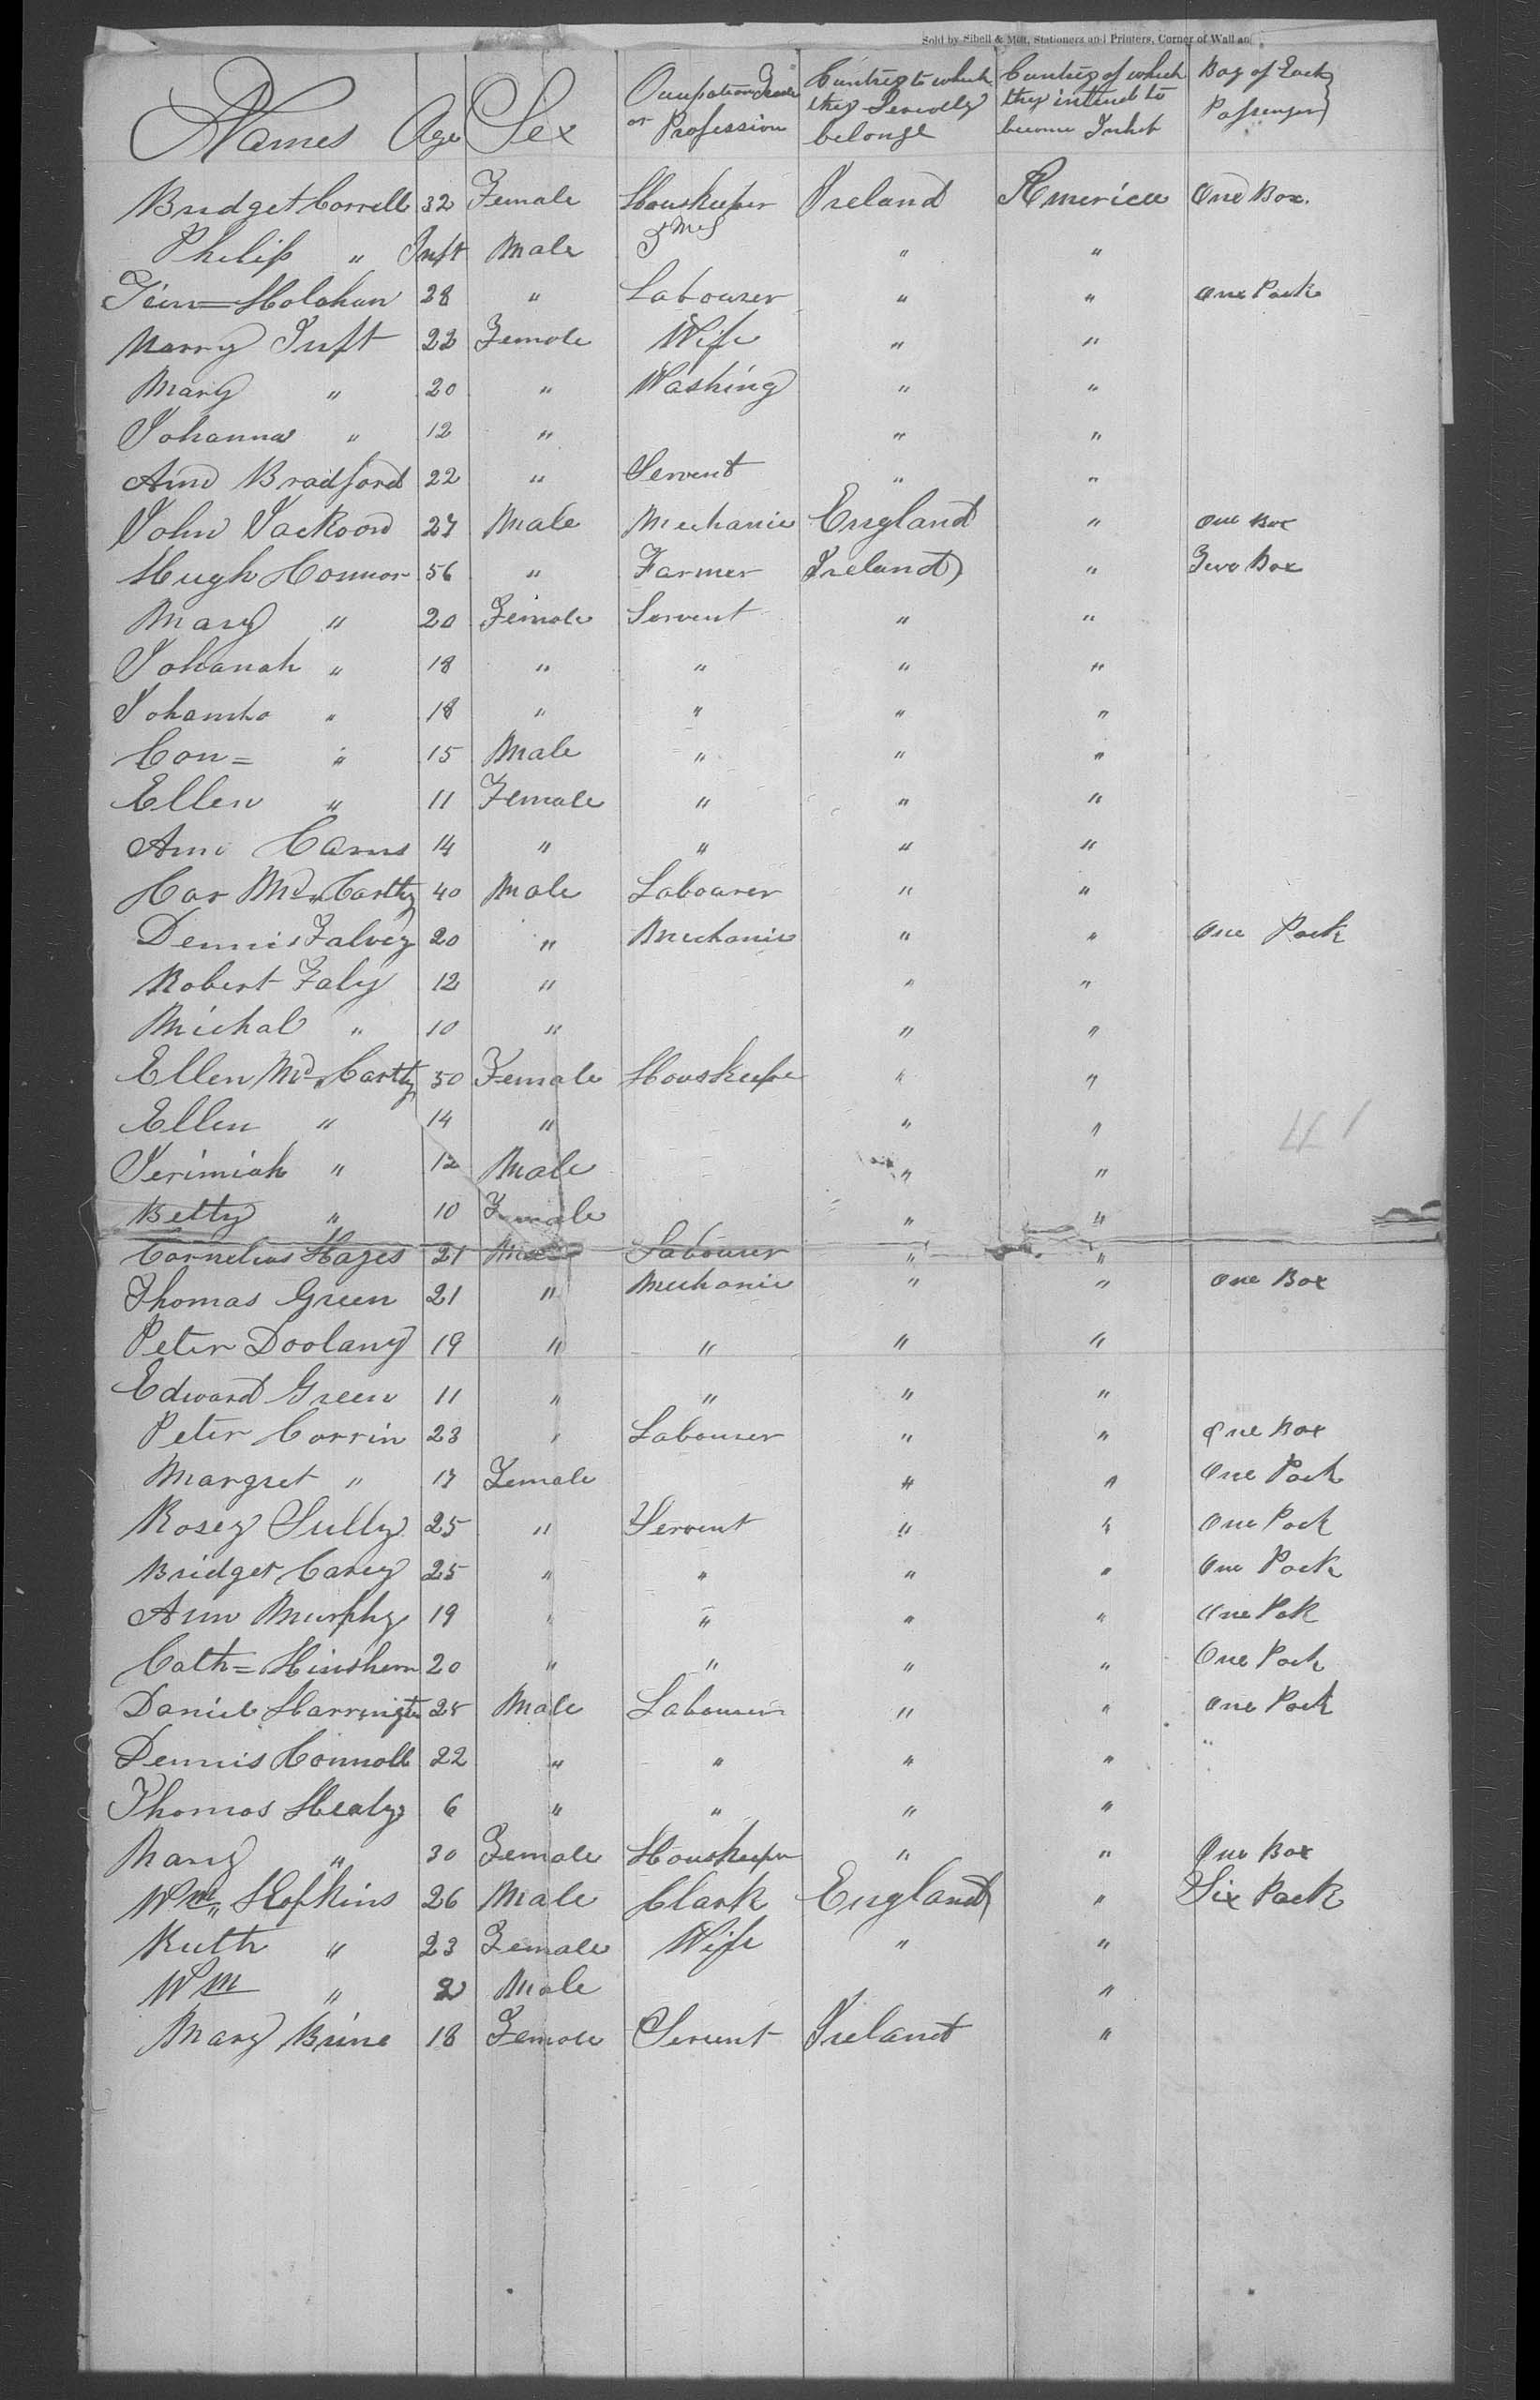 Sold by Sibell & Mott, Stationers and Printers, Corner of Wall an
Names Age Sex Ocupation Trade or Profession Cuntrey to which they Severelly belonge Cuntrey of which they intend to become Inhet Bag of Each Passenger
Bridget Correll 32 Female Houskeeper Ireland America One Box.
Philip " Inft Male 3 Ms " "
Holohan 28 " Labourer " " One Pack
Marry Tuft 22 Female Wife " "
Mary " 20 " Washing " "
Johanna " 12 " " "
Ann Bradford 22 " Servent " "
John Jackson 27 Male Mechanic England " One Box
Hugh Connor 56 " Farmer Ireland " Two Box
Mary " 20 Female Servent " "
Johanah " 18 " " " "
" 18 " " " "
Con= " 15 Male " " "
Ellen " 11 Female " " "
Ann Carns 14 " " " "
Mc Carthy 40 Male Labourer " "
Dennis Falvey 20 " Mechanic " " One Pack
Robert Faly 12 " " "
Michal " 10 " " "
Ellen Mc Carthy 50 Female Houskeepe " "
Ellen " 14 " " "
41
Jerimiah " 12 Male " "
Betty " 10 Female " "
Cornelius Hayes 21 Male Labourer " "
Thomas Green 21 " Mechanic " " One Box
Peter Doolany 19 " " " "
Edward Green 11 " " " "
Peter Corrin 23 " Labourer " " One Box
Margret " 17 Female " " One Pack
Rosey Sully 25 " Servent " " One Pack
Bridget Carey 25 " " " " One Pack
Ann Murphy 19 " " " " One Pak
Cath= 20 " " " " One Pack
Daniel Harringtn 25 Male Labourer " " One Pack
Dennis Connoll 22 " " " " "
Thomas Healy 6 " " " "
Mary " 30 Female Houskeeper " " One Box
Wm Hopkins 26 Male Clark England " Six Pack
Ruth " 23 Female Wife " "
Wm " 2 Male "
Mary Brine 18 Female Servent Ireland "